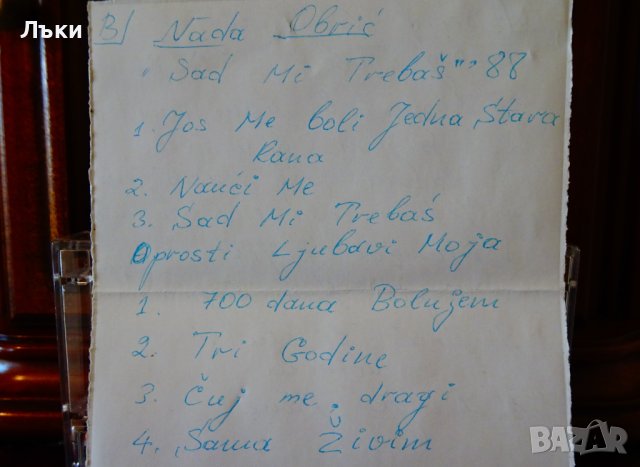 Лъки
B) Nada Obrić
"Sad Mi Trebaš"" '88
1. Jos Me boli Jedna Stara
Rana
2. Nauči Me
3. Sad Mi Trebaš
Oprosti Ljubavi Moja
1. 700 dana Bolujem
2. Tri Godine
3. Čuj me dragi
4. Sama Živim
BAZAR